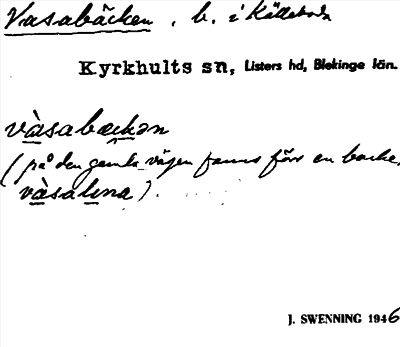 Vasabäcken, b. i Källeboda
Kyrkhults sn, Listers hd, Blekinge län.
vàsabækən
(på den gamla vägen fanns förr en backe,
vàsalına).
J. SWENNING 1946